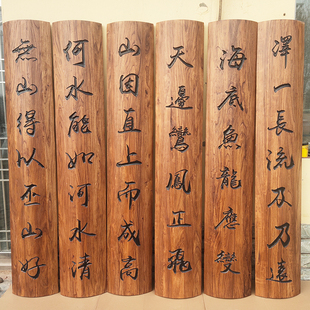 澤一長流及乃遠
海底魚龍應變
天邊鸞鳳正飛
山因直上而成高
何水能如河水清
無山得以巫山好